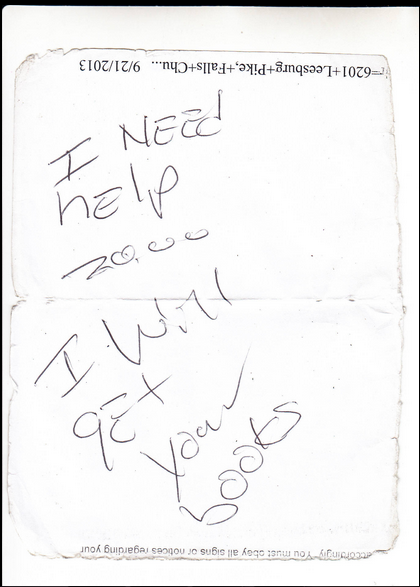 =6201+Leesburg+Pike,+Falls+Chu... 9/21/2013
I NEED
help
20.00
I Will
get
your
books
accordingly. You must obey all signs or notices regarding your